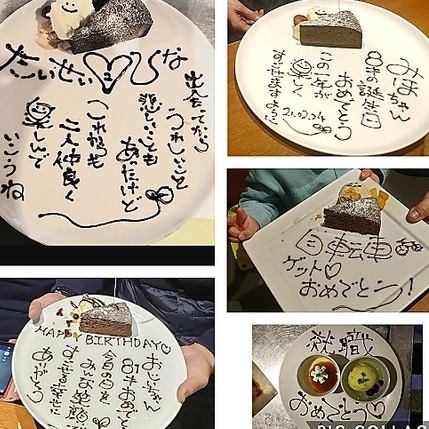 たいせい♡ひな
出会ってから
うれしいこと
悲しいことも
あったけど
これからも
二人仲良く
楽しんで
いこうね
みおちゃん
8才の誕生日
おめでとう
この一年が
楽しく
すごせますように
21.02.24
自転車
ゲット♡
おめでとう!
HAPPY BIRTHDAY♡
おじいちゃん
81才おめでとう
今日の日を
みんな笑顔で
ありがとう
就職
おめでとう♡
PIC COLLAG